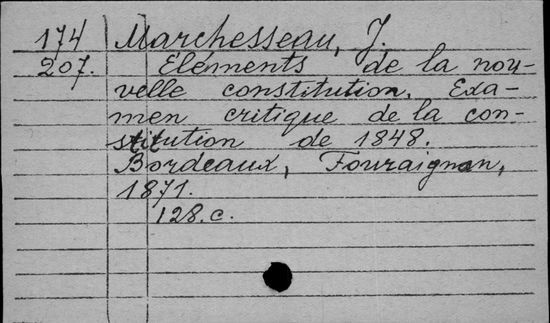 174 Marchesseau, J.
207. Éléments de la nou-
velle constitution. Exa-
men critique de la con-
stitution de 1848.
Bordeaux, Fouraignan,
1871.
128.c.